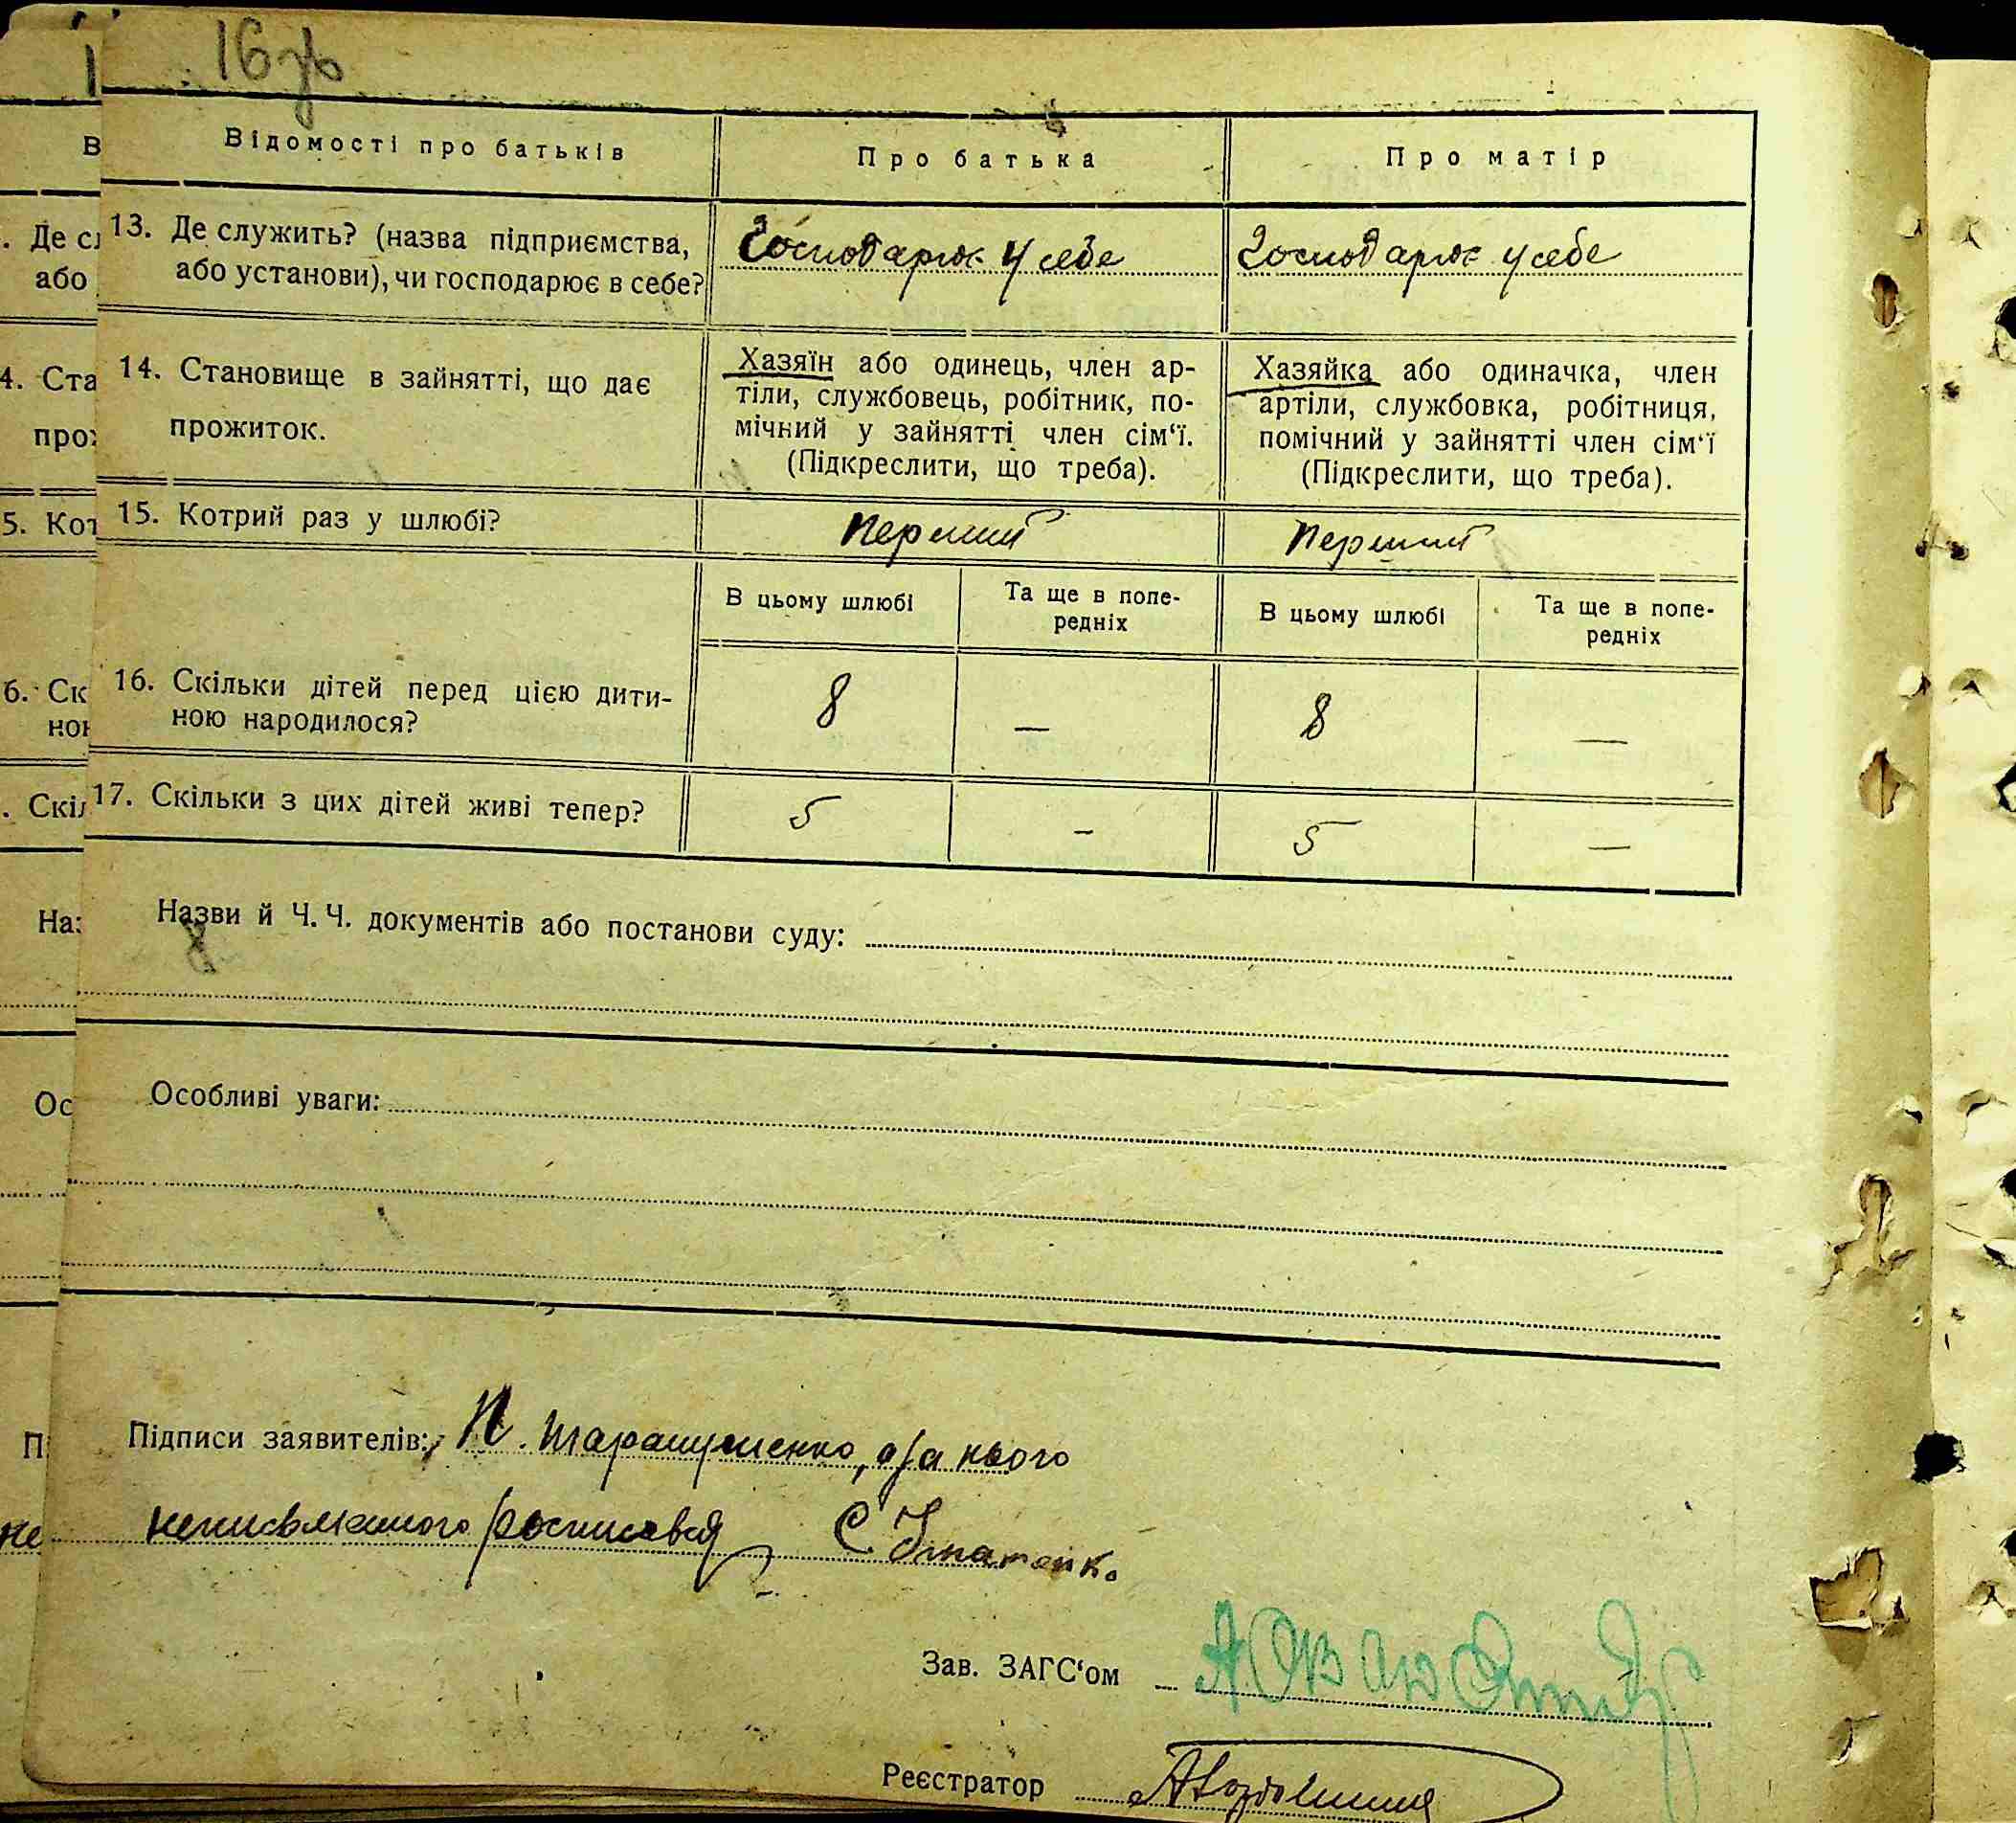 16зв
Відомості про батьків
Про батька
Про матір
13. Де служить? (назва підприємства,
або установи), чи господарює в себе?
Господарює у себе
Господарює у себе
14. Становище в зайнятті, що дає
прожиток.
Хазяїн або одинець, член ар-
тіли, службовець, робітник, по-
мічний у зайнятті член сім‘ї.
(Підкреслити, що треба).
Хазяйка або одиначка, член
артіли, службовка, робітниця,
помічний у зайнятті член сім‘ї
(Підкреслити, що треба).
15. Котрий раз у шлюбі?
перший
перший
В цьому шлюбі
Та ще в попе-
редніх
В цьому шлюбі
Та ще в попе-
редніх
16. Скільки дітей перед цією дити-
ною народилося?
8
—
8
—
17. Скільки з цих дітей живі тепер?
5
–
5
—
Назви й Ч. Ч. документів або постанови суду:
Особливі уваги:
Підписи заявителів: П. Тарапушенко, а за нього
неписьманого росписався С Ігнатенко
Зав. ЗАГС‘ом
Реєстратор
В
. Де сл
або
4. Ста
прож
5. Кот
6. Ск
ною
. Скіл
Наз
Ос
П
не